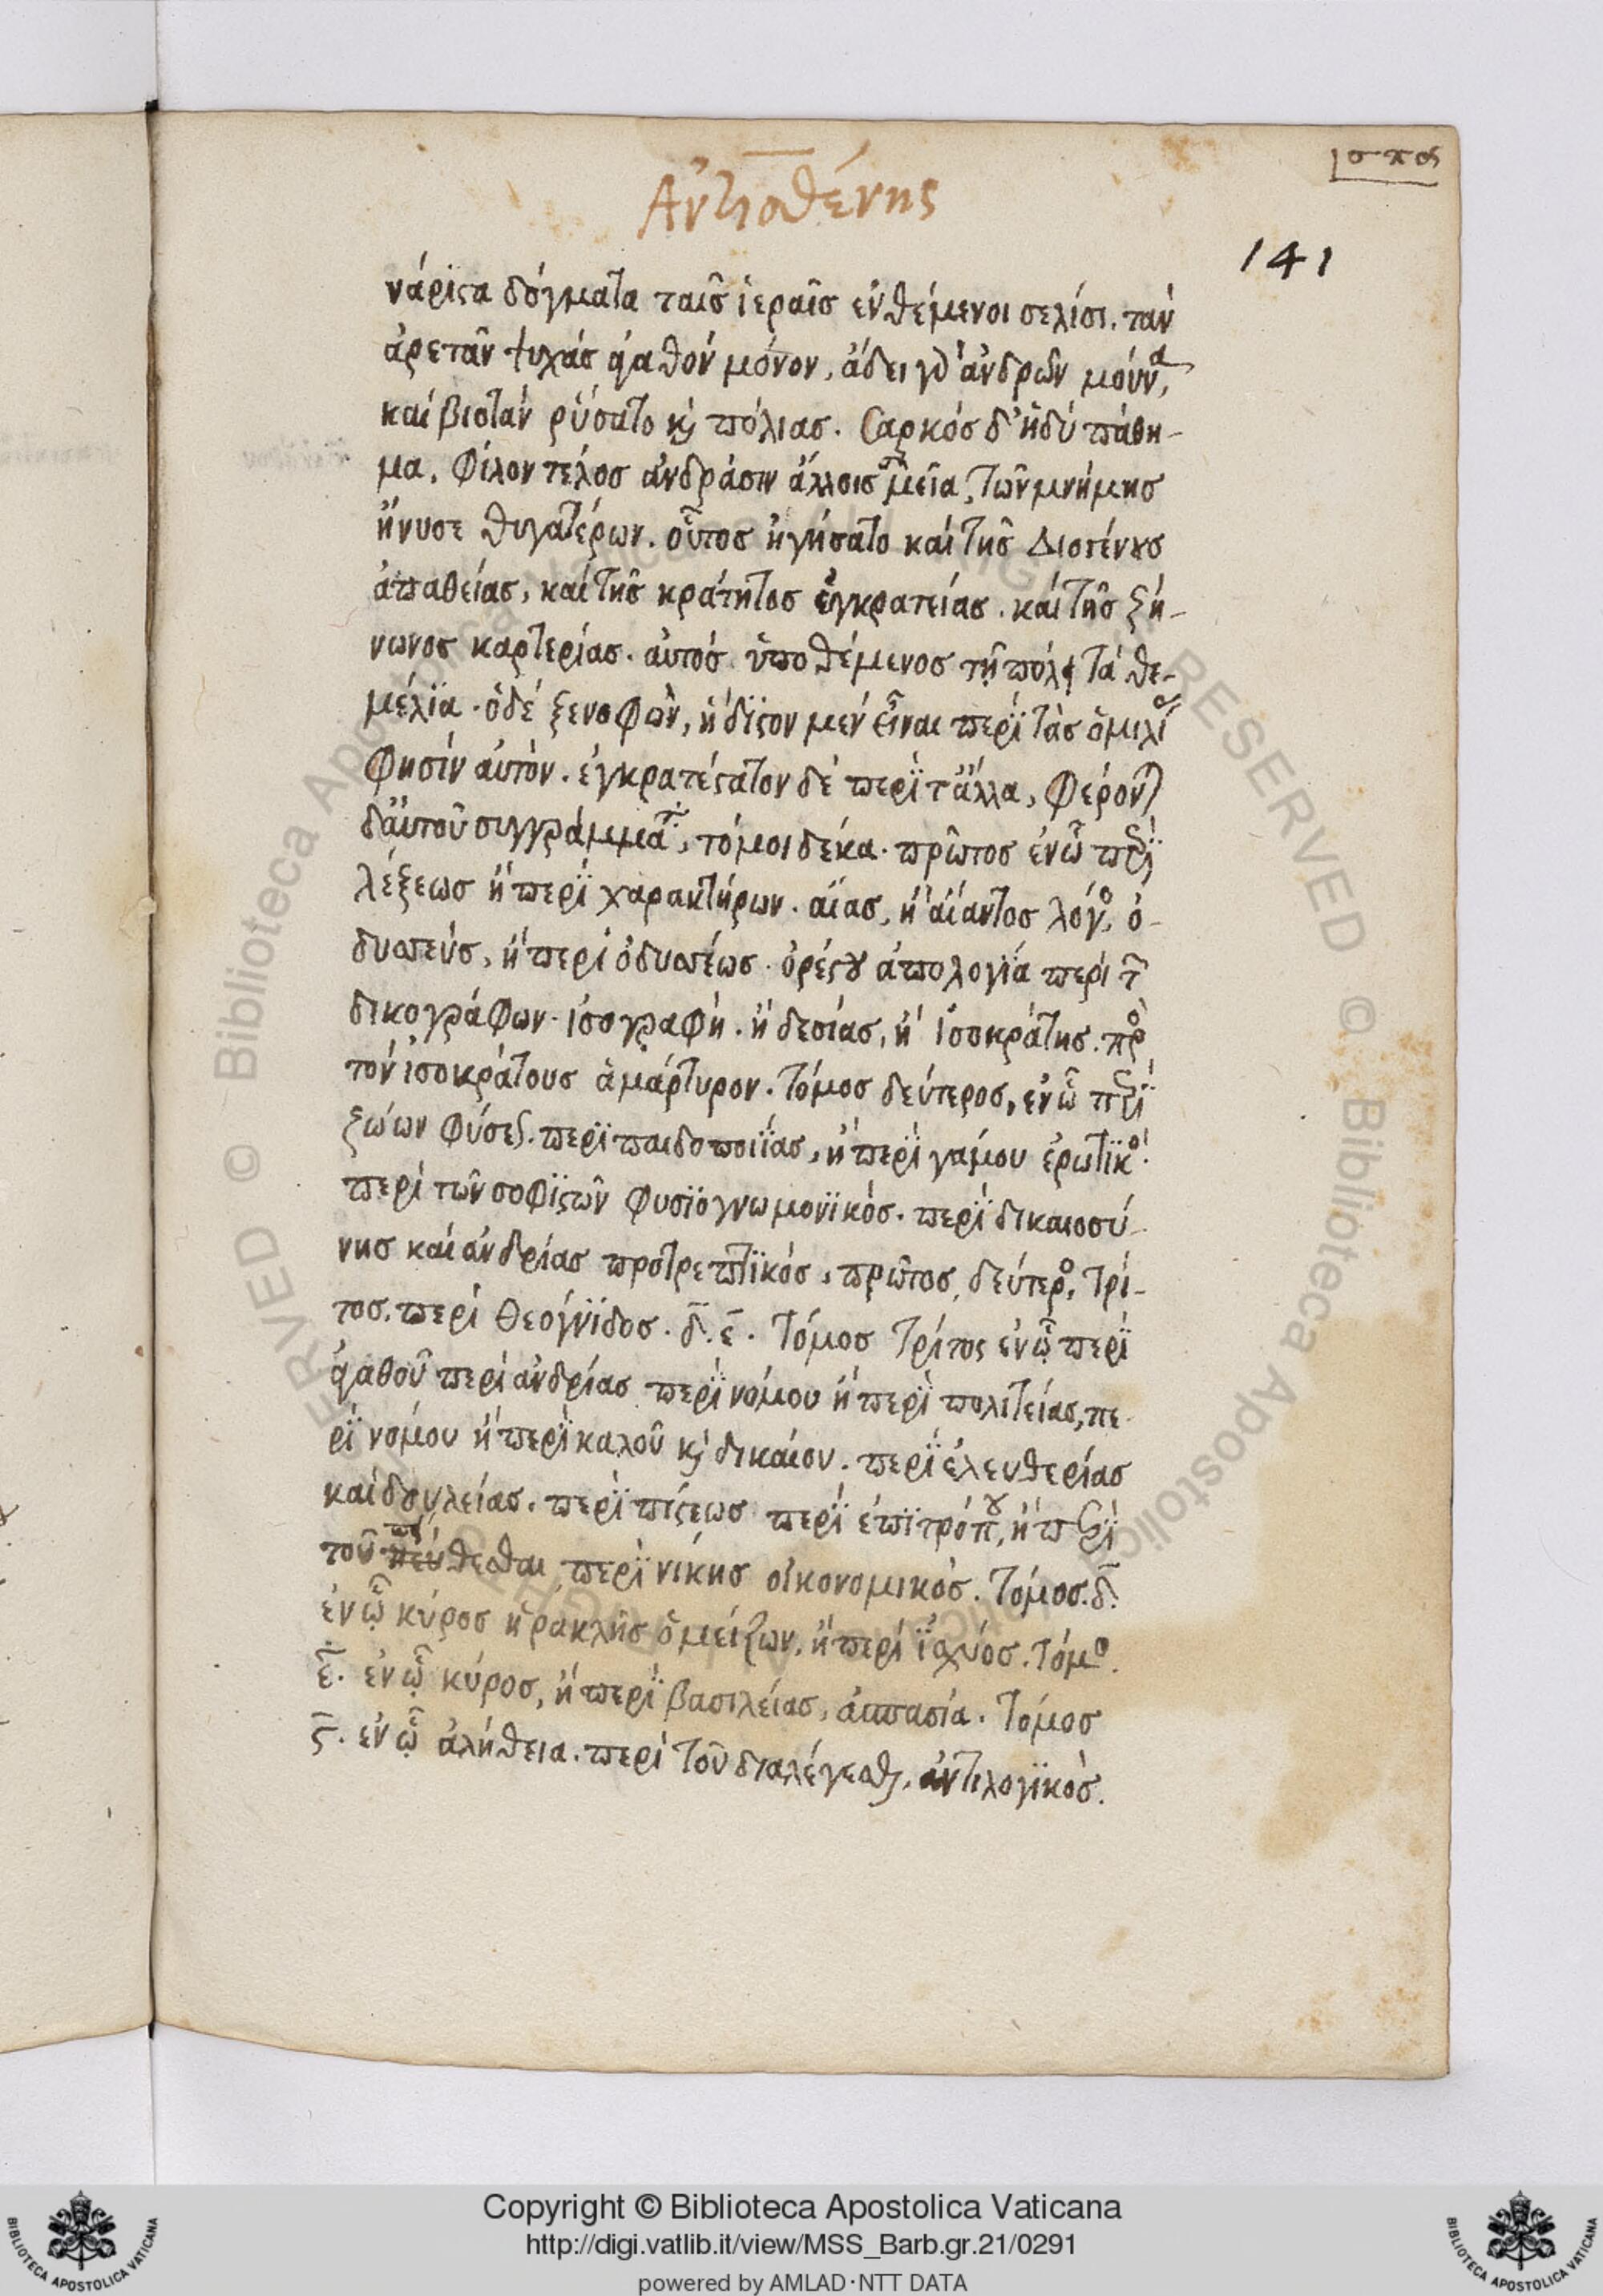 Ἀντισθένης
141
νάριϛα δόγματα ταῖσ ἱεραῖσ ἐνθέμενοι σελίσι. τὰν
ἀρετᾶν ψυχάσ ἀγαθόν μόνον, ἅδε γὰρ ἀνδρῶν μούνα,
καί βιοτάν ῥύσατο καὶ πόλιασ. Σαρκόσ δ' ἡδύ πάθη-
μα, φίλον τέλοσ ἀνδράσιν ἄλλοισ μεία, τῶν μνήμησ
ἤνυσε θυγατέρων. οὗτοσ ἡγήσατο καί τῆσ Διογένουσ
ἀπαθείασ, καί τῆσ κράτητοσ ἐγκρατείασ. καί τῆσ ζή-
νωνοσ καρτερίασ. αὐτόσ ὑποθέμενοσ τῇ πόλει τά θε-
μέλϊα. ὁ δέ ξενοφῶν, ἥδιϛον μέν εἶναι περϊ τὰσ ὁμιλί
φησίν αὐτόν. ἐγκρατέϛατον δέ περϊ τἆλλα, φέρονται
δ' αὐτοῦ συγγράμματα, τόμοι δέκα. πρῶτοσ ἐν ὧ περϊ
λέξεωσ ἤ περϊ χαρακτήρων. αἴασ, ἤ αἴαντοσ λόγοσ, ὀ-
δυσσεύσ, ἤ περί ὀδυσσέωσ. ὀρέϛου ἀπολογία περί τ̅
δικογράφων. ἰσογραφή. ἤ δεσίασ, ἤ ἰσοκράτησ. πρ
τόν ἰσοκράτουσ ἀμάρτυρον. τόμοσ δεύτεροσ, ἐν ὧ περϊ
ζώων φύσεωσ. περϊ παιδοποιϊασ, ἤ περϊ γάμου ἐρωτϊκοσ.
περί τῶν σοφϊϛῶν φυσϊογνωμονϊκόσ. περϊ δικαιοσύ-
νησ καί ἀνδρίασ προτρεπτϊκόσ, πρῶτοσ, δεύτερο, τρί-
τοσ. περί θεόγνϊδοσ. δ̅. ε̅. τόμοσ τρίτος ἐν ᾧ περϊ
ἀγαθοῦ περί ἀνδρίασ περϊ νόμου ἤ περϊ πολιτείασ, πε-
ρϊ νόμου ἤ περϊ καλοῦ καὶ δικαίου. περϊ ἐλευθερίασ
καί δουλείασ. περϊ πίϛεωσ περϊ ἐπϊτρόπου, ἤ περϊ
τοῦ πείθεσθαι περϊ νίκησ οἰκονομικόσ. τόμοσ. δ̅.
ἐν ᾧ κύροσ ἡρακλῆσ ὁ μείζων, ἤ περί ἰσχύοσ. τόμο.
ε̅. ἐν ᾧ κύροσ, ἤ περϊ βασιλείασ, ἀσπασία. τόμοσ
ϛ̅. ἐν ᾧ ἀλήθεια. περί τοῦ διαλέγεσθαι, ἀντιλογϊκόσ.
Copyright © Biblioteca Apostolica Vaticana
http://digi.vatlib.it/view/MSS_Barb.gr.21/0291
powered by AMLAD·NTT DATA